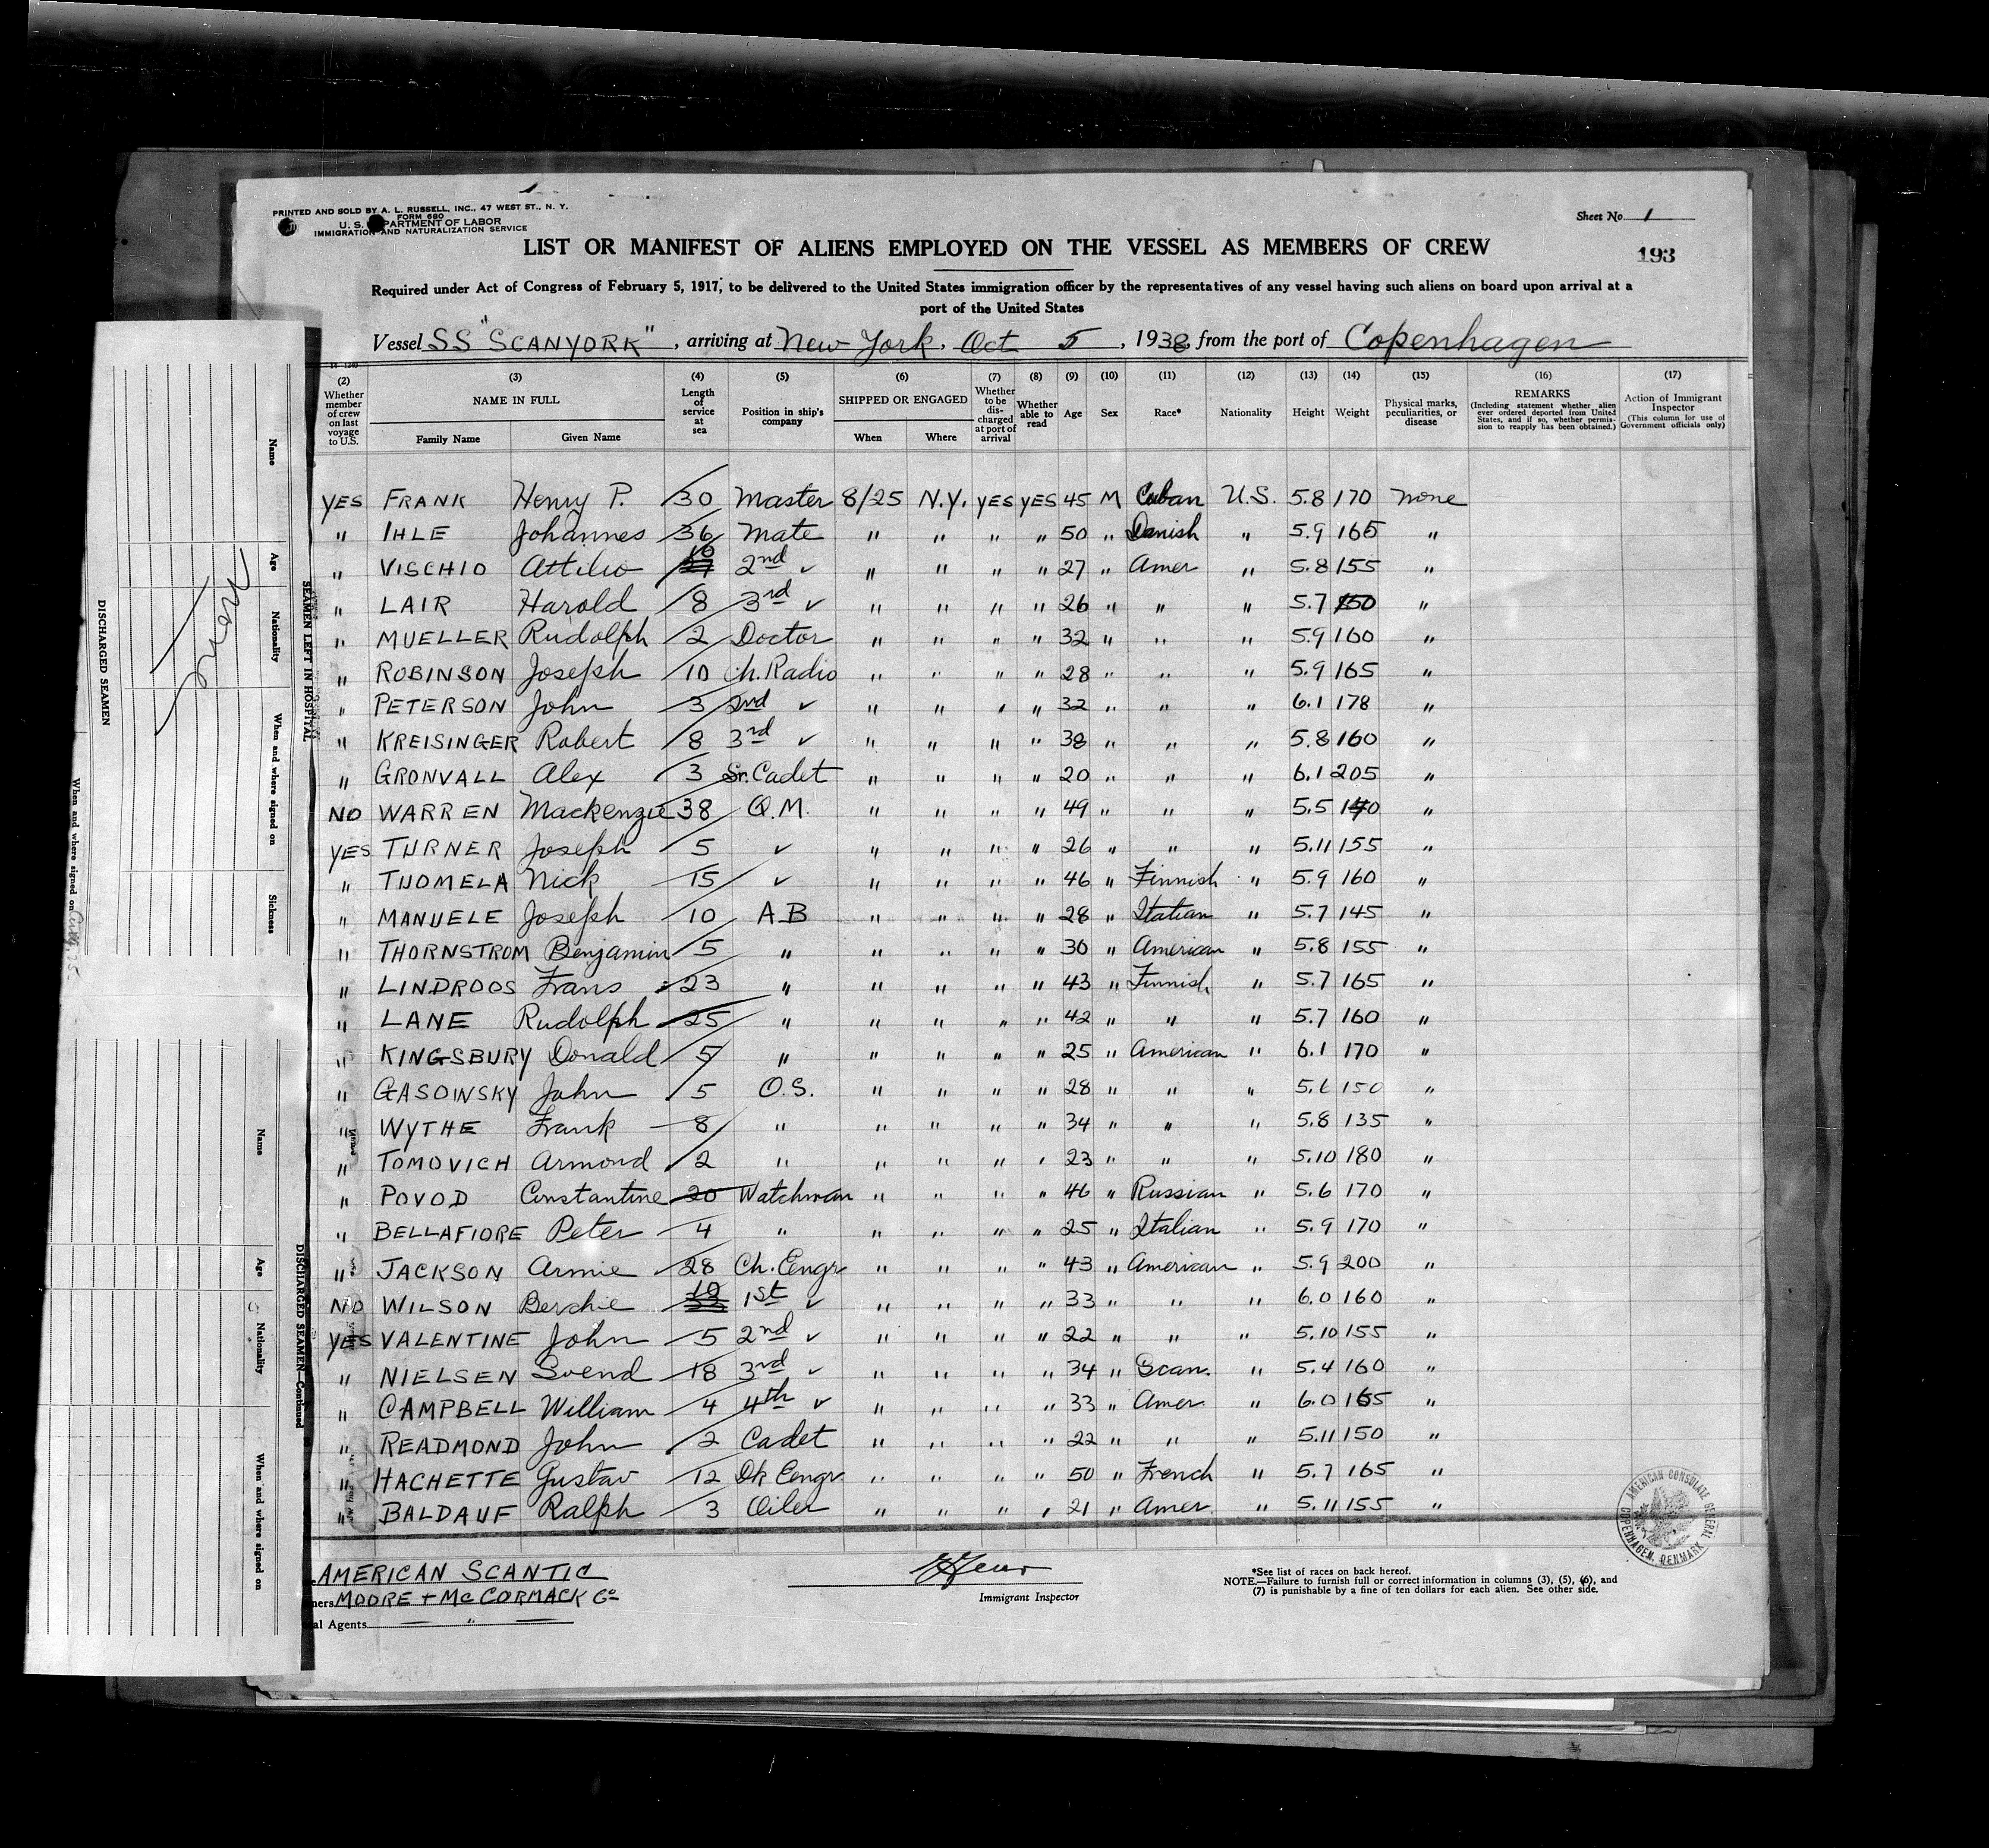 PRINTED AND SOLD BY A. L. RUSSELL, INC., 47 WEST ST., N. Y.
FORM 680
U. S. DEPARTMENT OF LABOR
IMMIGRATION AND NATURALIZATION SERVICE
Sheet No. 1
LIST OR MANIFEST OF ALIENS EMPLOYED ON THE VESSEL AS MEMBERS OF CREW
193
Required under Act of Congress of February 5, 1917, to be delivered to the United States immigration officer by the representatives of any vessel having such aliens on board upon arrival at a
port of the United States
Vessel SS "SCANYORK", arriving at New York, Oct 5, 1938, from the port of Copenhagen
(2) (3) (4) (5) (6) (7) (8) (9) (10) (11) (12) (13) (14) (15) (16) (17)
Whether member of crew on last voyage to U.S.
NAME IN FULL
Family Name Given Name
Length of service at sea
Position in ship's company
SHIPPED OR ENGAGED
When Where
Whether to be discharged at port of arrival
Whether able to read
Age Sex Race* Nationality Height Weight
Physical marks, peculiarities, or disease
REMARKS
(Including statement whether alien ever ordered deported from United States, and if so, whether permission to reapply has been obtained.)
Action of Immigrant Inspector
(This column for use of Government officials only)
YES FRANK Henry P. 30 Master 8/25 N.Y. YES YES 45 M Cuban U.S. 5.8 170 none
" IHLE Johannes 36 Mate " " " " 50 " Danish " 5.9 165 "
" VISCHIO Attilio 10 2nd ✓ " " " " 27 " Amer " 5.8 155 "
" LAIR Harold 8 3rd ✓ " " " " 26 " " " 5.7 150 "
" MUELLER Rudolph 2 Doctor " " " " 32 " " " 5.9 160 "
" ROBINSON Joseph 10 Ch. Radio " " " " 28 " " " 5.9 165 "
" PETERSON John 3 2nd ✓ " " " " 32 " " " 6.1 178 "
" KREISINGER Robert 8 3rd ✓ " " " " 38 " " " 5.8 160 "
" GRONVALL Alex 3 Sr. Cadet " " " " 20 " " " 6.1 205 "
NO WARREN Mackenzie 38 Q.M. " " " " 49 " " " 5.5 140 "
YES TURNER Joseph 5 ✓ " " " " 26 " " " 5.11 155 "
" TUOMELA Nick 15 ✓ " " " " 46 " Finnish " 5.9 160 "
" MANUELE Joseph 10 AB " " " " 28 " Italian " 5.7 145 "
" THORNSTROM Benjamin 5 " " " " " 30 " American " 5.8 155 "
" LINDROOS Frans 23 " " " " " 43 " Finnish " 5.7 165 "
" LANE Rudolph 25 " " " " " 42 " " " 5.7 160 "
" KINGSBURY Donald 5 " " " " " 25 " American " 6.1 170 "
" GASOINSKY John 5 O.S. " " " " 28 " " " 5.6 150 "
" WYTHE Frank 8 " " " " " 34 " " " 5.8 135 "
" TOMOVICH Armond 2 " " " " " 23 " " " 5.10 180 "
" POVOD Constantine 20 Watchman " " " " 46 " Russian " 5.6 170 "
" BELLAFIORE Peter 4 " " " " " 25 " Italian " 5.9 170 "
" JACKSON Armie 28 Ch. Engr " " " " 43 " American " 5.9 200 "
NO WILSON Berchie 10 1st ✓ " " " " 33 " " " 6.0 160 "
YES VALENTINE John 5 2nd ✓ " " " " 22 " " " 5.10 155 "
" NIELSEN Svend 18 3rd ✓ " " " " 34 " Scan. " 5.4 160 "
" CAMPBELL William 4 4th ✓ " " " " 33 " Amer. " 6.0 165 "
" READMOND John 2 Cadet " " " " 22 " " " 5.11 150 "
" HACHETTE Gustav 12 Dk Engr. " " " " 50 " French " 5.7 165 "
" BALDAUF Ralph 3 Oiler " " " " 21 " Amer. " 5.11 155 "
AMERICAN SCANTIC
ners MOORE + McCORMACK Co
al Agents "
Immigrant Inspector
*See list of races on back hereof.
NOTE.—Failure to furnish full or correct information in columns (3), (5), (6), and
(7) is punishable by a fine of ten dollars for each alien. See other side.
AMERICAN CONSULATE GENERAL
COPENHAGEN, DENMARK
SEAMEN LEFT IN HOSPITAL
Name Age Nationality When and where signed on Sickness
DISCHARGED SEAMEN
When and where signed on
DISCHARGED SEAMEN—Continued
Name Age Nationality When and where signed on